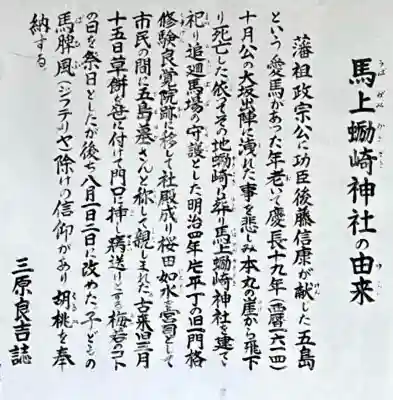 馬上蛎崎神社の由来
藩祖政宗公に功臣後藤信康が献した五島
という愛馬があった年老いて慶長十九年(西暦一六一四)
十月公の大坂出陣に洩れた事を悲しみ本丸の崖から飛下
り死亡した依ってその地蛎崎に葬り馬上蛎崎神社を建て
祀り追廻馬場の守護とした明治四年片平丁の旧門格
修験良覚院跡に移して社殿成り桜田如水を宮司として
市民の間に五島墓さんと称して親しまれた古来旧三月
十五日草餅を笹に付けて門口に挿し病送りとする梅若のコト
の日を祭日としたが後ち八月一日二日に改めた子どもの
馬脾風(ジフテリヤ)除けの信仰があり胡桃を奉
納する。
三原良吉誌